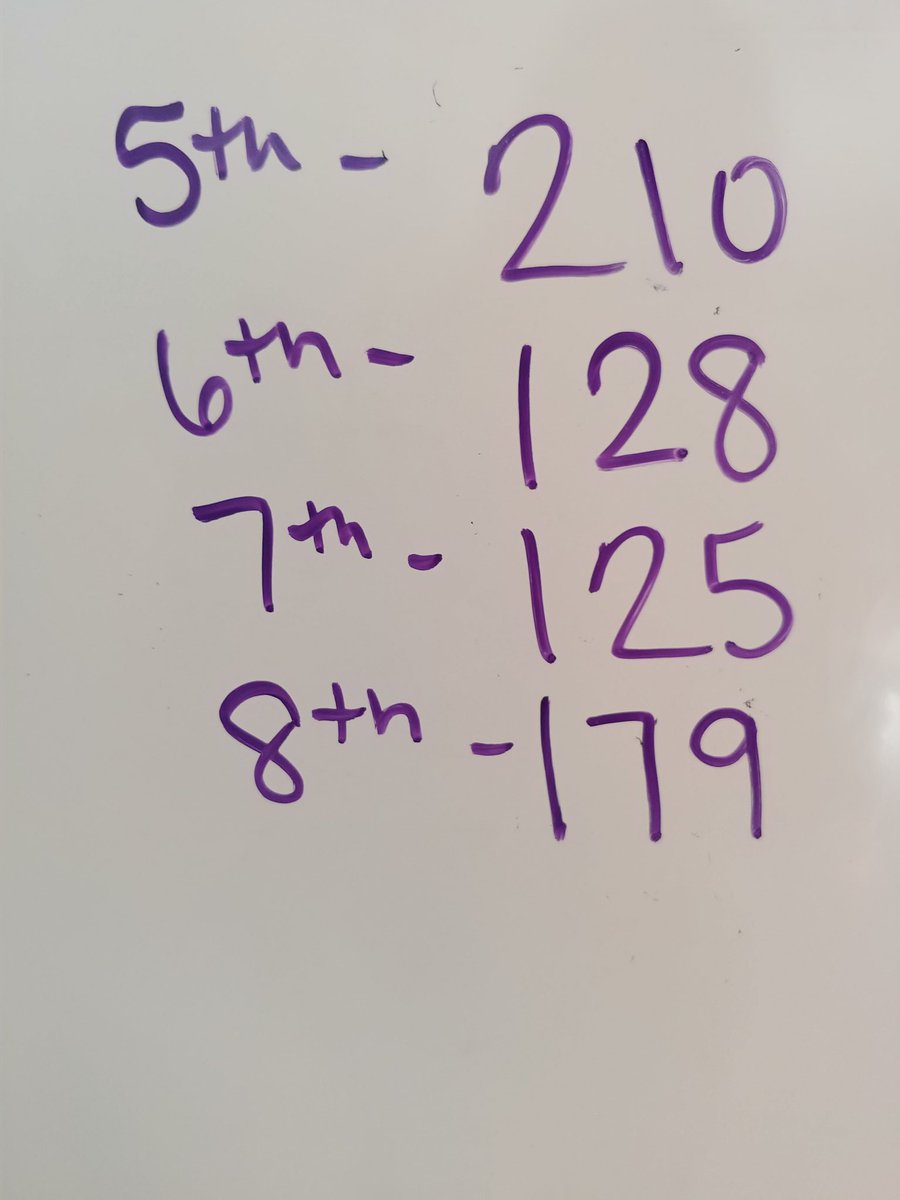 5th - 210
6th - 128
7th - 125
8th - 179